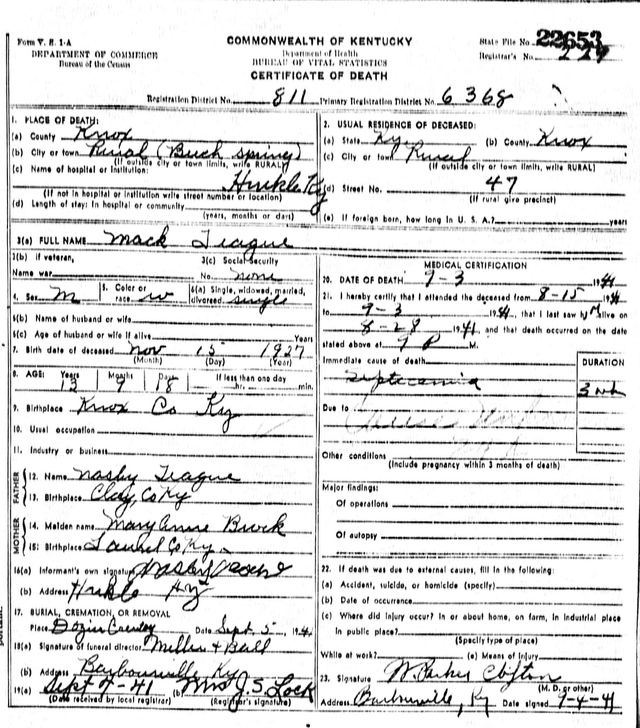 Form V. S. 1-A
DEPARTMENT OF COMMERCE
Bureau of the Census
COMMONWEALTH OF KENTUCKY
Department of Health
BUREAU OF VITAL STATISTICS
CERTIFICATE OF DEATH
State File No. 22653
Registrar's No. 227
Registration District No. 811 Primary Registration District No. 6368
1. PLACE OF DEATH:
(a) County Knox
(b) City or town Rural (Buch spring)
(If outside city or town limits, write RURAL)
(c) Name of hospital or institution:
Hinkle Ky
(If not in hospital or institution write street number or location)
(d) Length of stay: In hospital or community
(years, months or days)
2. USUAL RESIDENCE OF DECEASED:
(a) State Ky (b) County Knox
(c) City or town Rural
(If outside city or town limits, write RURAL)
(d) Street No. 47
(If rural give precinct)
(e) If foreign born, how long in U. S. A.? years
3(a) FULL NAME Mack Teague
3(b) If veteran,
Name war
3(c) Social Security
No. none
4. Sex M
5. Color or race W
6(a) Single, widowed, married, divorced single
6(b) Name of husband or wife
6(c) Age of husband or wife if alive Years
7. Birth date of deceased Nov 15 1927
(Month) (Day) (Year)
8. AGE: Years 13 Months 9 Days 18 If less than one day hr. min.
9. Birthplace Knox Co Ky
10. Usual occupation
11. Industry or business
FATHER
12. Name Nasby Teague
13. Birthplace Clay Co Ky
MOTHER
14. Maiden name Mary Anne Brock
15. Birthplace Laurel Co Ky
16(a) Informant's own signature Nasby
(b) Address Hinkle Ky
17. BURIAL, CREMATION, OR REMOVAL
Place Dozier Date Sept 5, 1941
18(a) Signature of funeral director Miller & Ball
(b) Address Barbourville Ky
19(a) Sept 9-41 (b) Mrs J. S. Lock
(Date received by local registrar) (Registrar's signature)
MEDICAL CERTIFICATION
20. DATE OF DEATH 9-3 1941
21. I hereby certify that I attended the deceased from 8-15 1941
to 9-3 1941, that I last saw h alive on
8-28 1941 and that death occurred on the date
stated above at 9 P M.
Immediate cause of death DURATION
Septicemia 3 wk
Due to
Other conditions
(Include pregnancy within 3 months of death)
Major findings:
Of operations
Of autopsy
22. If death was due to external causes, fill in the following:
(a) Accident, suicide, or homicide (specify)
(b) Date of occurrence
(c) Where did injury occur? In or about home, on farm, in industrial place
in public place?
(Specify type of place)
While at work? (e) Means of Injury
23. Signature W. Parker Clifton
(M. D. or other)
Address Barbourville, Ky Date signed 9-4-41